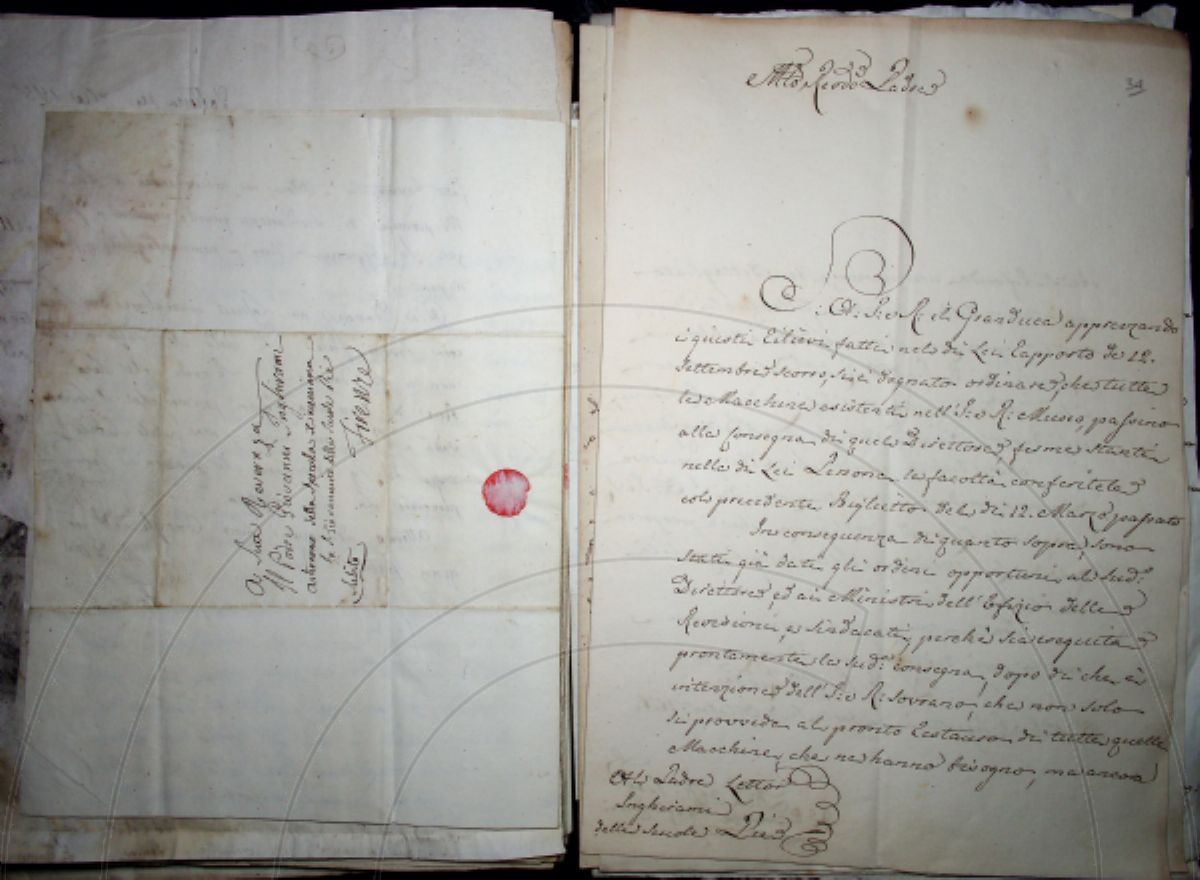 A Sua Reverenza
Il Pdre Giovanni Inghirami
Astronomo della Specola Ximeniana
In S. Giovannino delle Scuole Pie
Firenze
Subito
34
Mlto Revdo Padre
S: A: I: e R: il Granduca apprezzando
i giusti rilievi fatti nel di Lei rapporto de 12.
Settembre scorso, si è degnato ordinare, che tutte
le Macchine esistenti nell' I: e R: Museo, passino
alla consegna di quel Direttore, ferme stanti
nella di Lei Persona le facoltà conferitele
col precedente Biglietto del dì 12. Marzo passato
In conseguenza di quanto sopra, sono
stati già dati gli ordini opportuni al sud.º
Direttore, ed ai Ministri dell' Ufizio delle
Revisioni, e Sindacati, perchè sia eseguita
prontamente la sud.ª consegna, dopo di che è
intenzione dell' I: e R: Sovrano, che non solo
si provveda al pronto restauro di tutte quelle
Macchine, che ne hanno bisogno, ma ancora
Al Padre Lettor
Inghirami
delle Scuole Pie